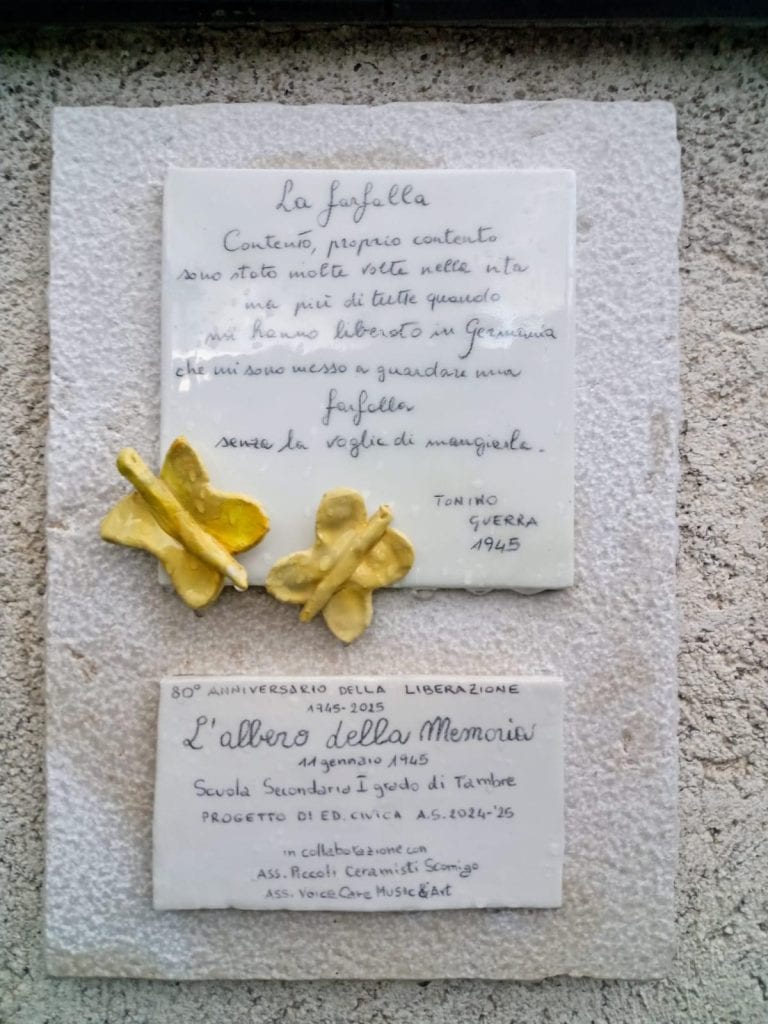 La farfalla
Contento, proprio contento
sono stato molte volte nella vita
ma più di tutte quando
mi hanno liberato in Germania
che mi sono messo a guardare una
farfalla
senza la voglia di mangiarla.
TONINO
GUERRA
1945
80° ANNIVERSARIO DELLA LIBERAZIONE
1945-2025
L'albero della Memoria
11 gennaio 1945
Scuola Secondaria I grado di Tambre
PROGETTO DI ED. CIVICA A.S. 2024-'25
in collaborazione con
ASS. Piccoli Ceramisti Scomigo
ASS. Voice Care Music & Art